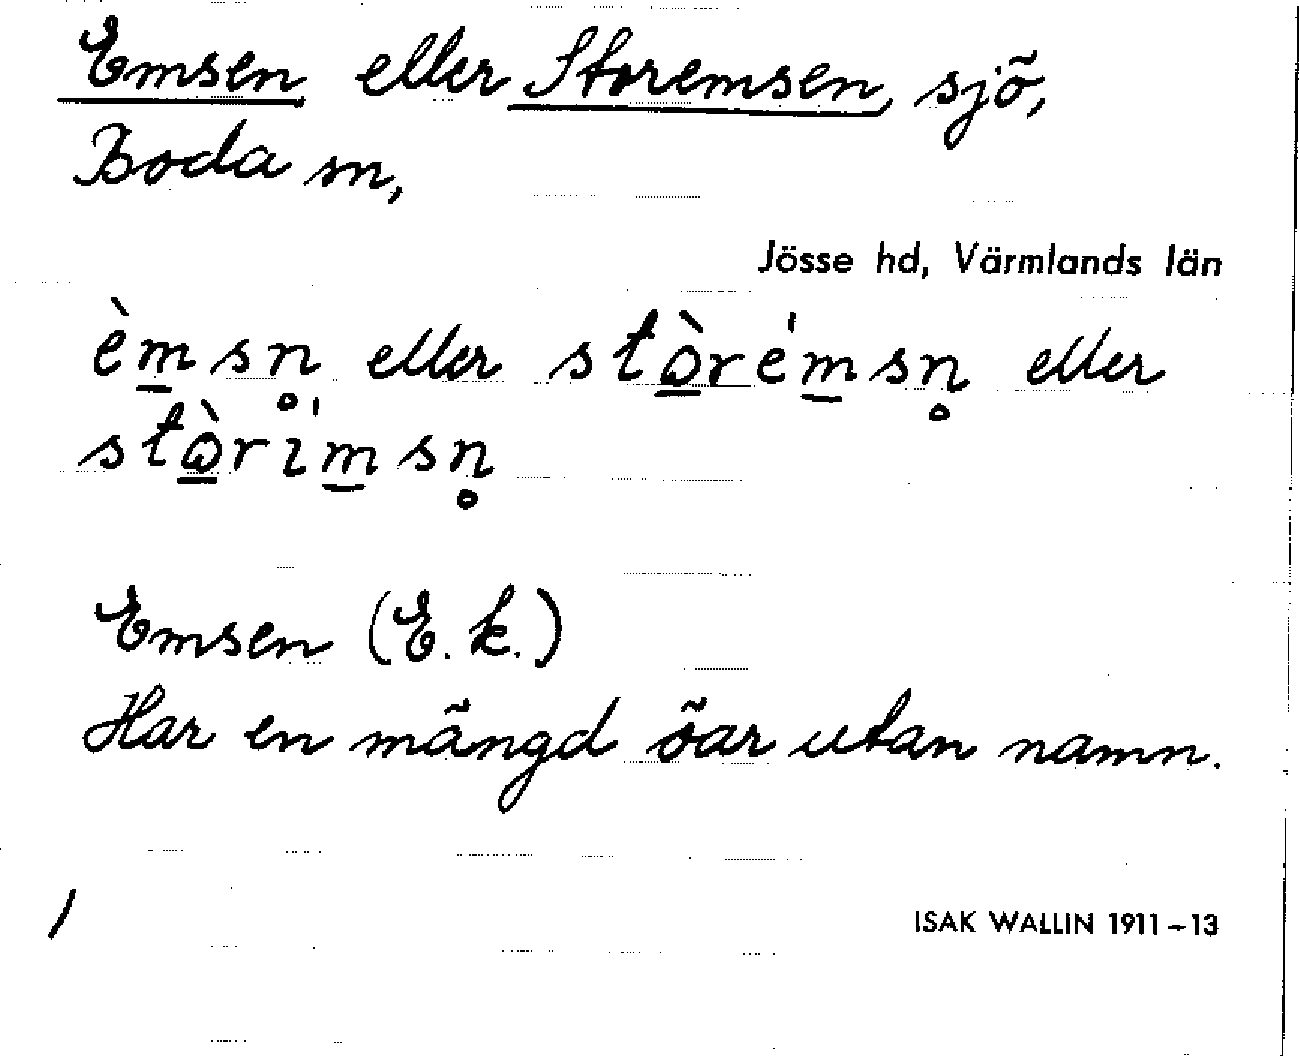 Emsen eller Storemsen, sjö,
Boda sn,
Jösse hd, Värmlands län
èm̲sn̥ eller stò̲rém̲sn̥ eller
stò̲rím̲sn̥
Emsen (E.k.)
Har en mängd öar utan namn.
/
ISAK WALLIN 1911–13